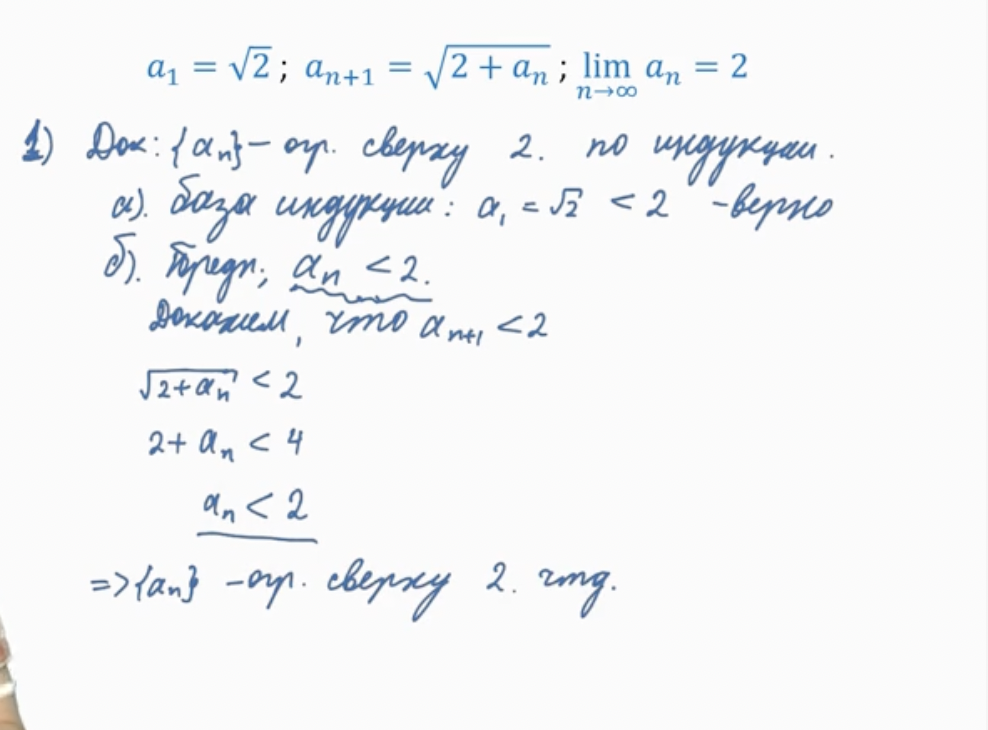 a₁ = √2 ; aₙ₊₁ = √(2 + aₙ) ; lim n→∞ aₙ = 2
1) Док: {aₙ} – огр. сверху 2. по индукции.
а). база индукции: a₁ = √2 < 2 – верно
б). Предп; aₙ < 2.
Докажем, что aₙ₊₁ < 2
√(2+aₙ) < 2
2 + aₙ < 4
aₙ < 2
=> {aₙ} – огр. сверху 2. чтд.